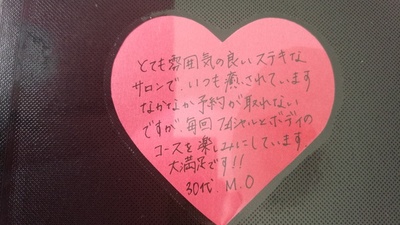 とても雰囲気の良いステキな
サロンで、いつも癒されています
なかなか予約が取れない
ですが、毎回フェイシャルとボディの
コースを楽しみにしています
大満足です!!
30代 M.O